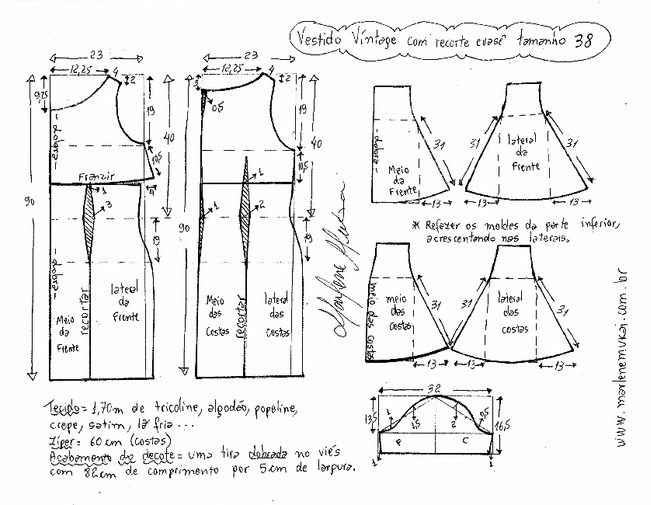 Vestido Vintage com recorte evasê tamanho 38
23
12,25
4
2
9,25
19
40
dobra
Franzir
1
3
90
19
dobra
Meio da Frente
recortar
lateral da Frente
23
12,25
4
2
0,5
19
40
10,5
1
1
2
90
19
Meio das Costas
recortar
lateral das Costas
Marlene Mukai
dobra
Meio da Frente
31
13
31
lateral da Frente
31
13
13
* Refazer os moldes da parte inferior,
acrescentando nas laterais.
meio das costas
meio das costas
31
13
31
lateral das costas
31
13
13
32
13,5
1
1,5
2
0,5
16,5
P
C
1
1
Tecido = 1,70m de tricoline, algodão, popeline,
crepe, satim, lã fria ...
Zíper = 60 cm (costas)
Acabamento do decote = uma tira dobrada no viés
com 82cm de comprimento por 5cm de largura.
www.marlenemukai.com.br